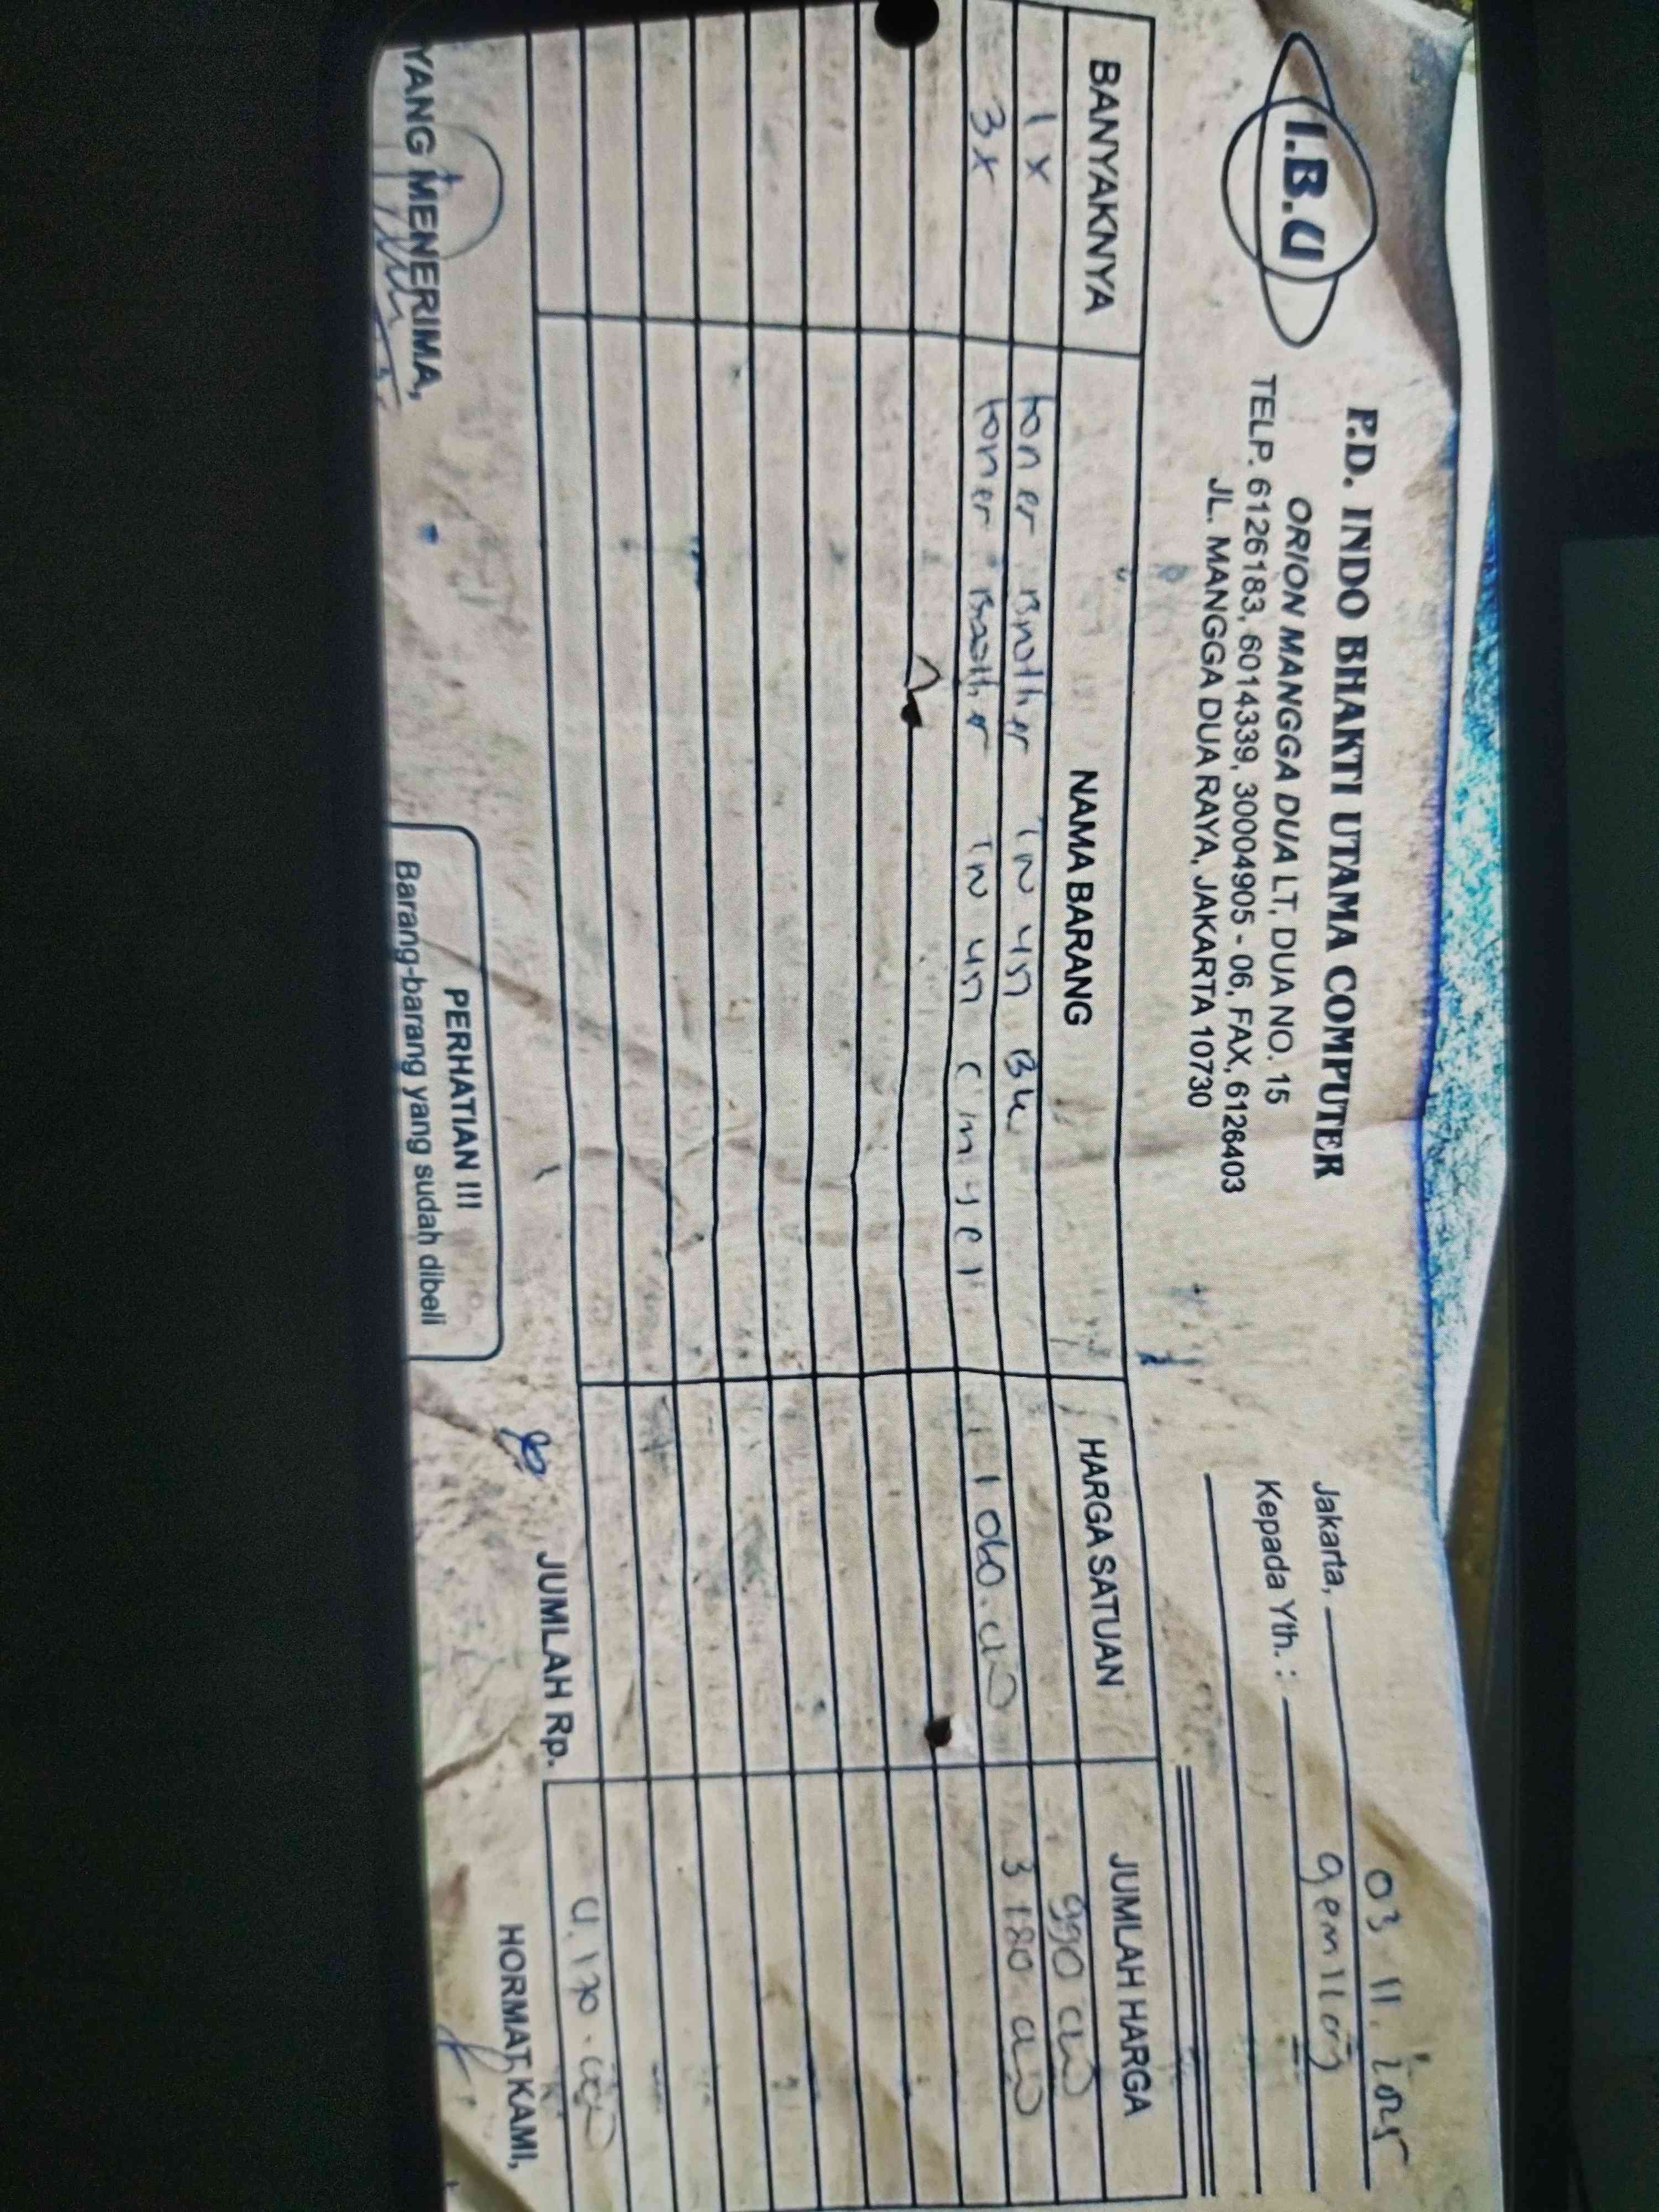 I.B.U
P.D. INDO BHAKTI UTAMA COMPUTER
ORION MANGGA DUA LT. DUA NO. 15
TELP. 6126183, 6014339, 30004905 - 06, FAX, 6126403
JL. MANGGA DUA RAYA, JAKARTA 10730
Jakarta, 03 11. 2025
Kepada Yth. :
BANYAKNYA NAMA BARANG HARGA SATUAN JUMLAH HARGA
1x toner Brother TN 451 BK 990 000
3x toner Brother TN 451 1 060.000 3 180 000
JUMLAH Rp. 4.170.000
YANG MENERIMA,
PERHATIAN !!!
Barang-barang yang sudah dibeli
HORMAT KAMI,